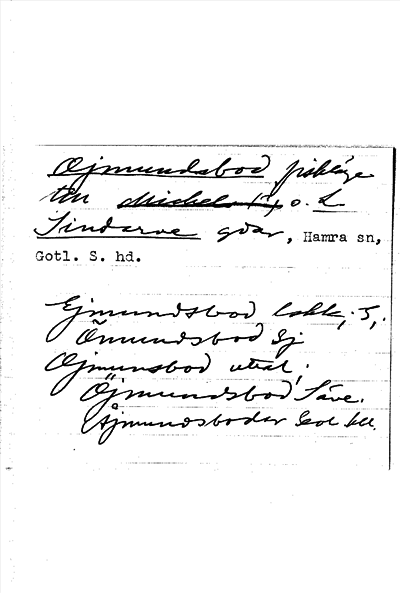 Öjmundsbod fiskläge
till o. L.
Sindarve gdar, Hamra sn,
Gotl. S. hd.
Ejmundsbod lokk, 5,
Ömundsbod Sj
Öjmunsbod uttal;
Öjmundsbod Säve.
Åjmundsboder Geol bl.